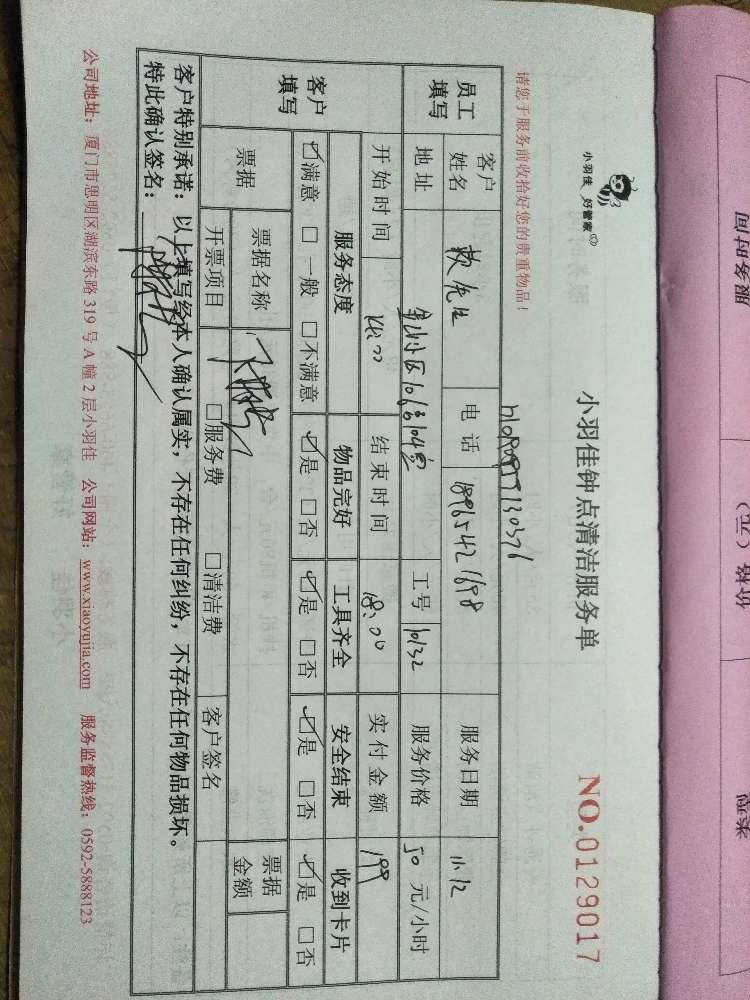 小羽佳 好管家
小羽佳钟点清洁服务单
NO.0129017
请您于服务前收拾好您的贵重物品！
员工填写
客户姓名
电话 18965421698
服务日期 11.12
地址
工号 10132
服务价格 50 元/小时
开始时间 14:00
结束时间 18:00
实付金额 199
客户填写
服务态度 物品完好 工具齐全 安全结束 收到卡片
☑满意 □一般 □不满意 ☑是 □否 ☑是 □否 ☑是 □否 ☑是 □否
票据
票据名称
票据金额
开票项目 □服务费 □清洁费 客户签名
客户特别承诺：以上填写经本人确认属实，不存在任何纠纷，不存在任何物品损坏。
特此确认签名：
公司地址：厦门市思明区湖滨东路 319 号 A 幢 2 层小羽佳 公司网站：www.xiaoyujia.com 服务监督热线：0592-5888123
服务时间
价格（元）